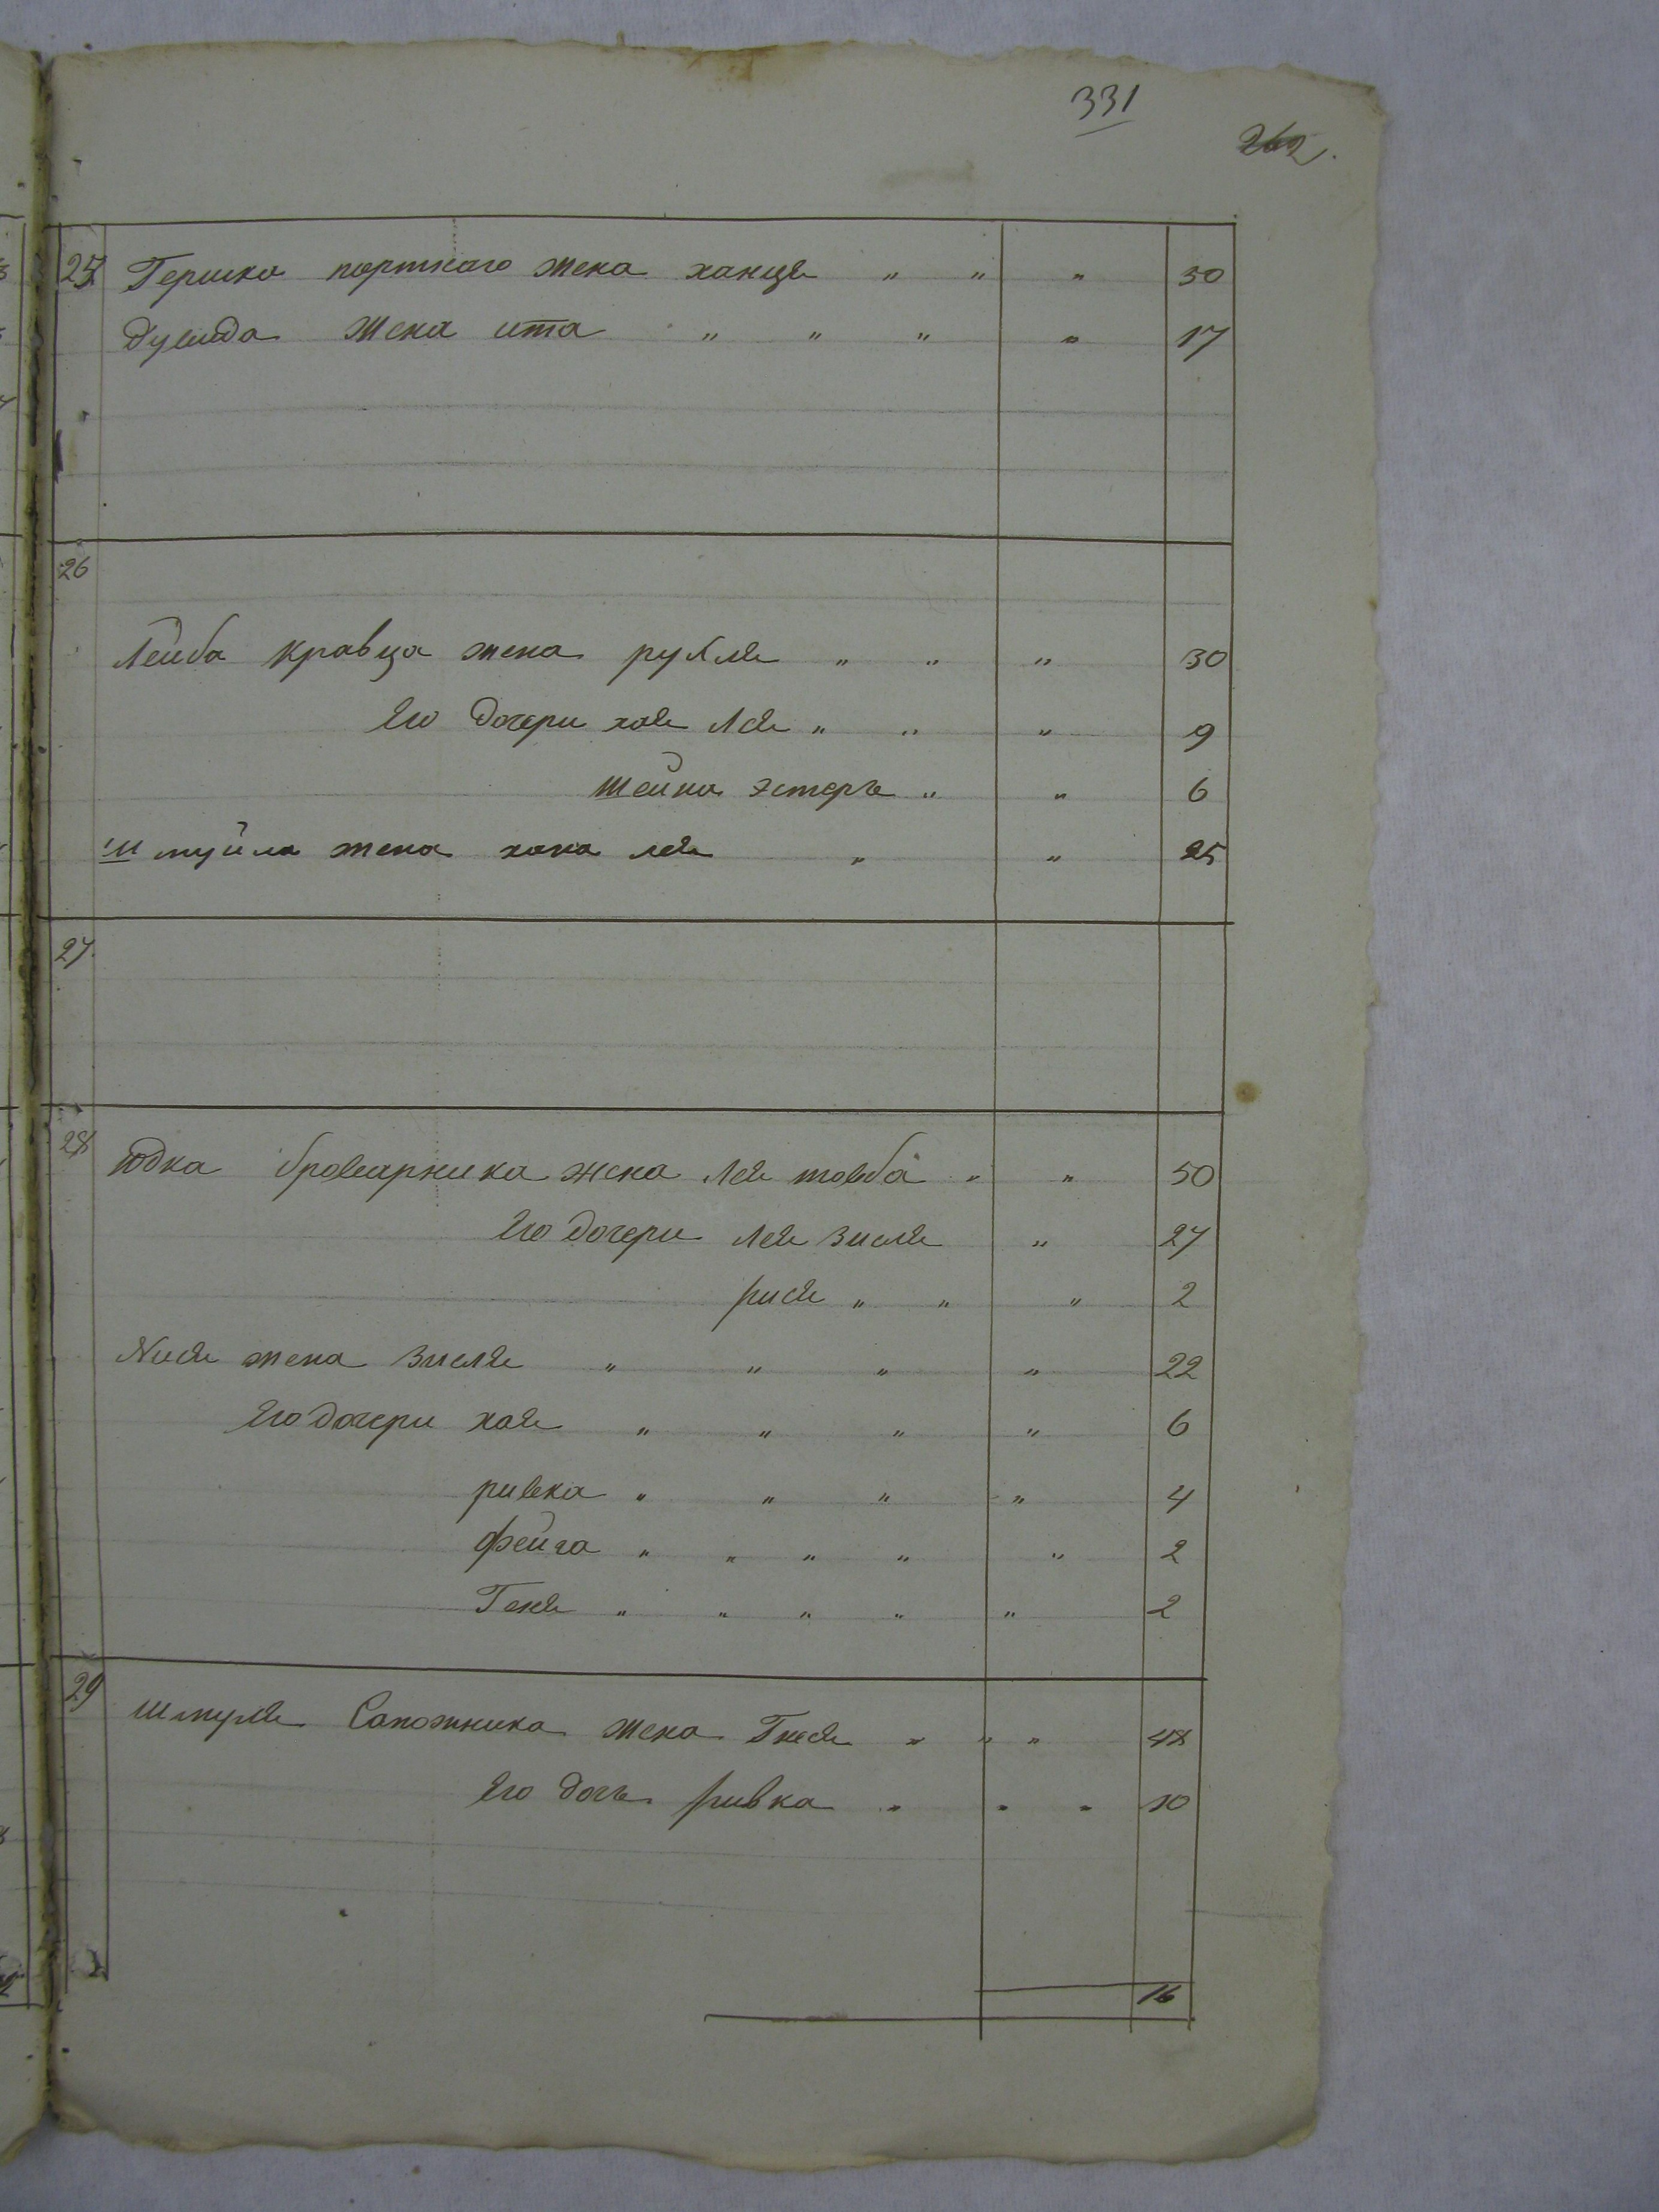 331
262.
25 Гершка портнаго жена ханця " " " 50
Дувида жена ита " " " " 17
26
Лейба кравца жена рухля " " " 30
Его дочери хая Лея " " " 9
шейна эстеръ " " 6
Шмуйла жена хана лея " " 25
27.
28 Юдка броварника жена Лея товба " " 50
Его дочери Лея зисля " 27
рися " " " 2
Нися жена зисля " " " " 22
Его дочери хая " " " " 6
ривка " " " " 4
фейга " " " " " 2
Геня " " " " " 2
29 шмуля Сапожника жена Гнеся " " " 48
Его дочь ривка " " " 10
16